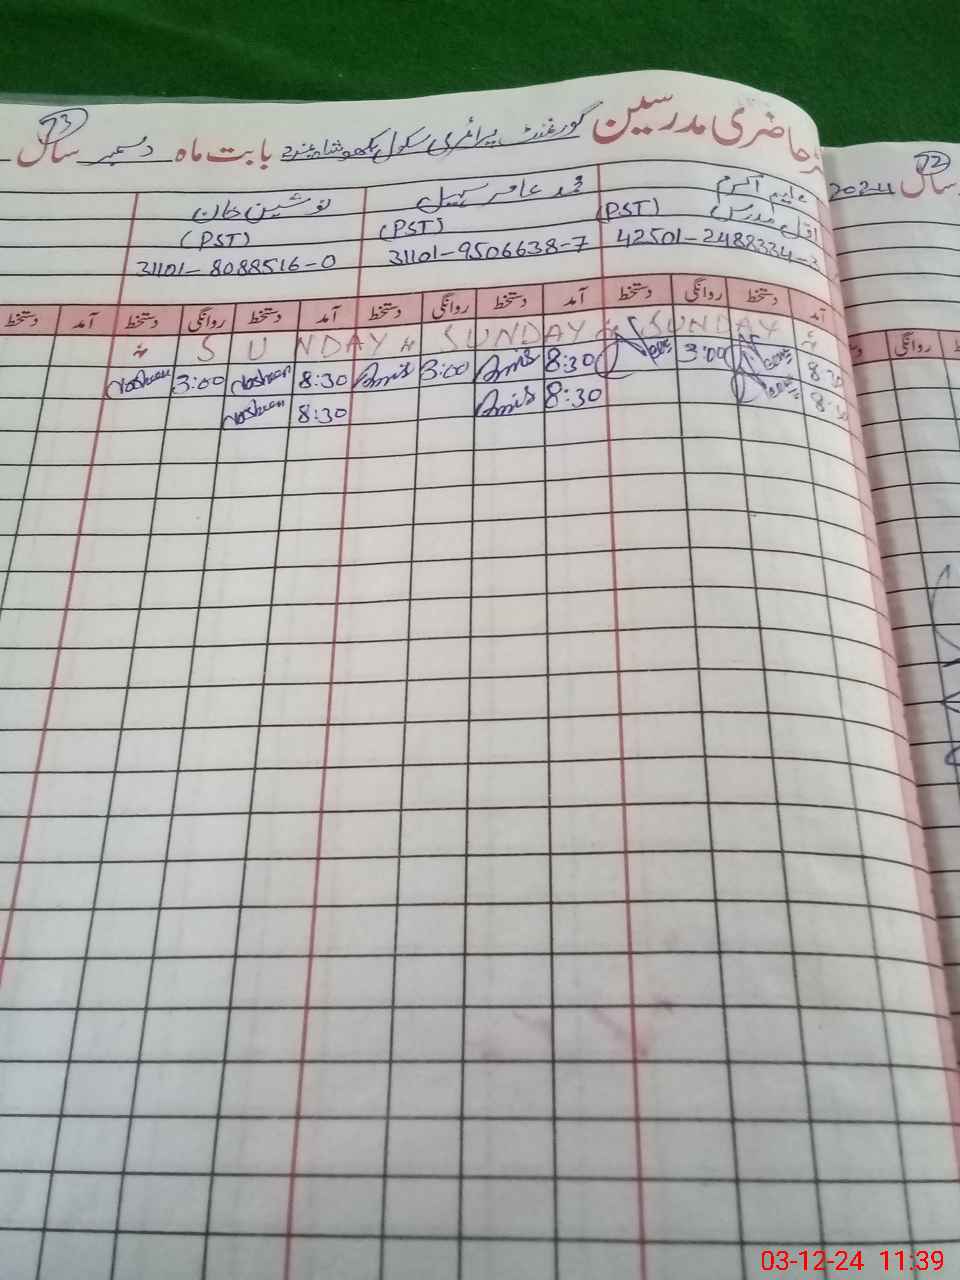 حاضری مدرسین گورنمنٹ پرائمری سکول بابت ماہ دسمبر سال
73
72
سال 2024
محمد عامر سہیل
نوشین خان
اول مدرس (PST)
(PST)
(PST)
42501-2488334-3
31101-9506638-7
31101-8088516-0
آمد دستخط روانگی دستخط آمد دستخط روانگی دستخط آمد دستخط روانگی دستخط آمد دستخط
روانگی
SUNDAY SUNDAY SUNDAY
8:30 3:00 8:30 Amir 3:00 Amir 8:30 Nosheen 3:00 Nosheen
8:30 8:30 Amir 8:30 Nosheen
03-12-24 11:39